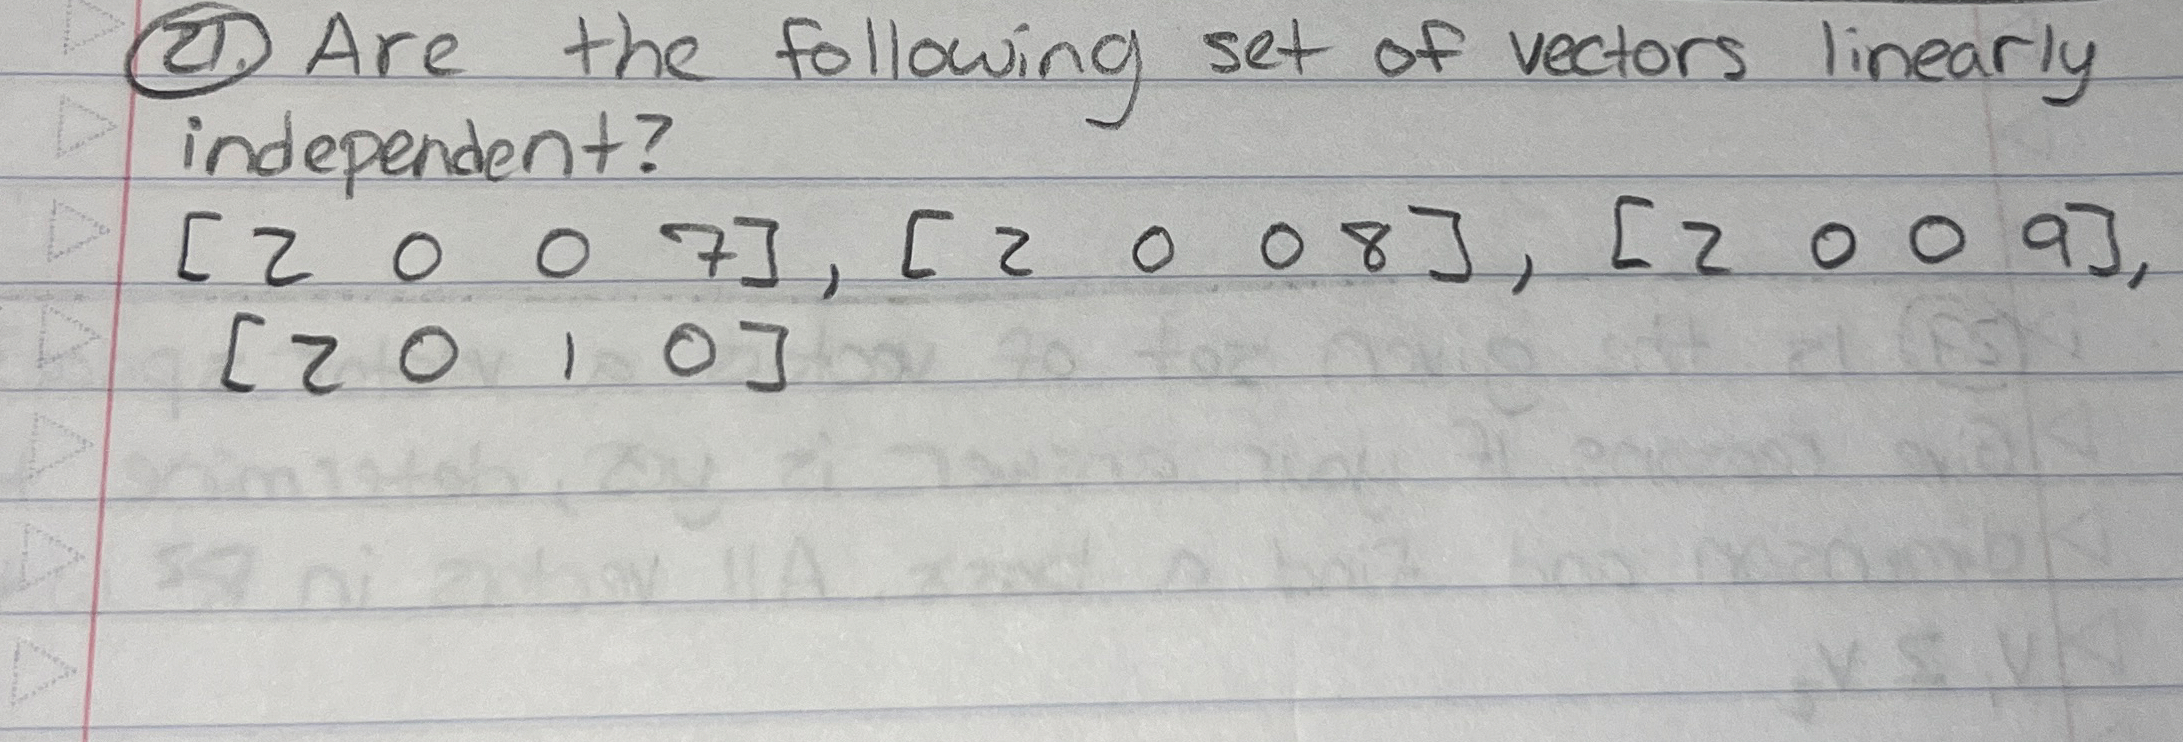 21. Are the following set of vectors linearly
independent?
[2 0 0 7], [2 0 0 8], [2 0 0 9],
[2 0 1 0]